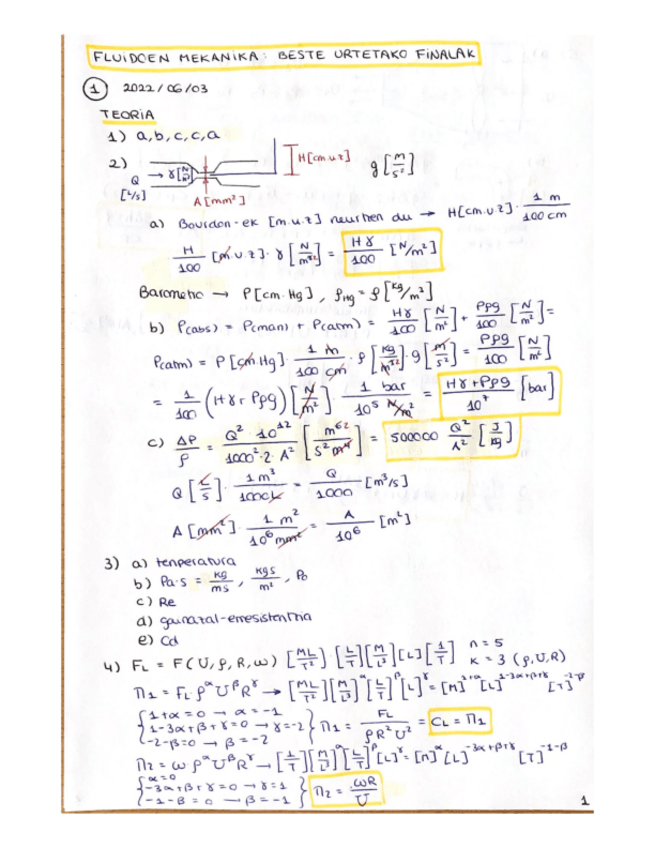 FLUIDOEN MEKANIKA: BESTE URTETAKO FINALAK
1 2022/06/03
TEORIA
1) a, b, c, c, a
2) Q [L/s] → γ[N/m³] A [mm²] H[cm.u.z] g [m/s²]
a) Bourdon-ek [m.u.z] neurtzen du → H[cm.u.z] · 1 m / 100 cm
H/100 [m.u.z] · γ [N/m³] = Hγ/100 [N/m²]
Barometro → P[cm.Hg], ρHg = ρ[kg/m³]
b) P(abs) = P(man) + P(atm) = Hγ/100 [N/m²] + Pρg/100 [N/m²] =
P(atm) = P [cm Hg] · 1 m / 100 cm · ρ [kg/m³] · g [m/s²] = Pρg/100 [N/m²]
= 1/100 (Hγ + Pρg) [N/m²] · 1 bar / 10⁵ N/m² = Hγ + Pρg / 10⁷ [bar]
c) ΔP/ρ = Q² · 10¹² / 1000² · 2 · A² [m⁶ ² / s² m⁴] = 500000 Q²/A² [J/kg]
Q [L/s] · 1 m³ / 1000 L = Q/1000 [m³/s]
A [mm²] · 1 m² / 10⁶ mm² = A/10⁶ [m²]
3) a) tenperatura
b) Pa·s = kg/ms, kgs/m², Po
c) Re
d) gainazal-erresistentzia
e) Cd
4) FL = F(U, ρ, R, ω) [ML/T²] · [L/T] [M/L³] [L] [1/T] n = 5 k = 3 (ρ, U, R)
Π1 = FL · ρ^α U^β R^γ → [ML/T²] [M/L³]^α [L/T]^β [L]^γ = [M]^1+α [L]^1-3α+β+γ [T]^-2-β
{ 1+α = 0 → α = -1
1-3α+β+γ = 0 → γ = -2 } Π1 = FL / ρR²U² = CL = Π1
-2-β = 0 → β = -2
Π2 = ω · ρ^α U^β R^γ → [1/T] [M/L³]^α [L/T]^β [L]^γ = [M]^α [L]^-3α+β+γ [T]^-1-β
{ α = 0
-3α+β+γ = 0 → γ = 1 } Π2 = ωR/U
-1-β = 0 → β = -1
1